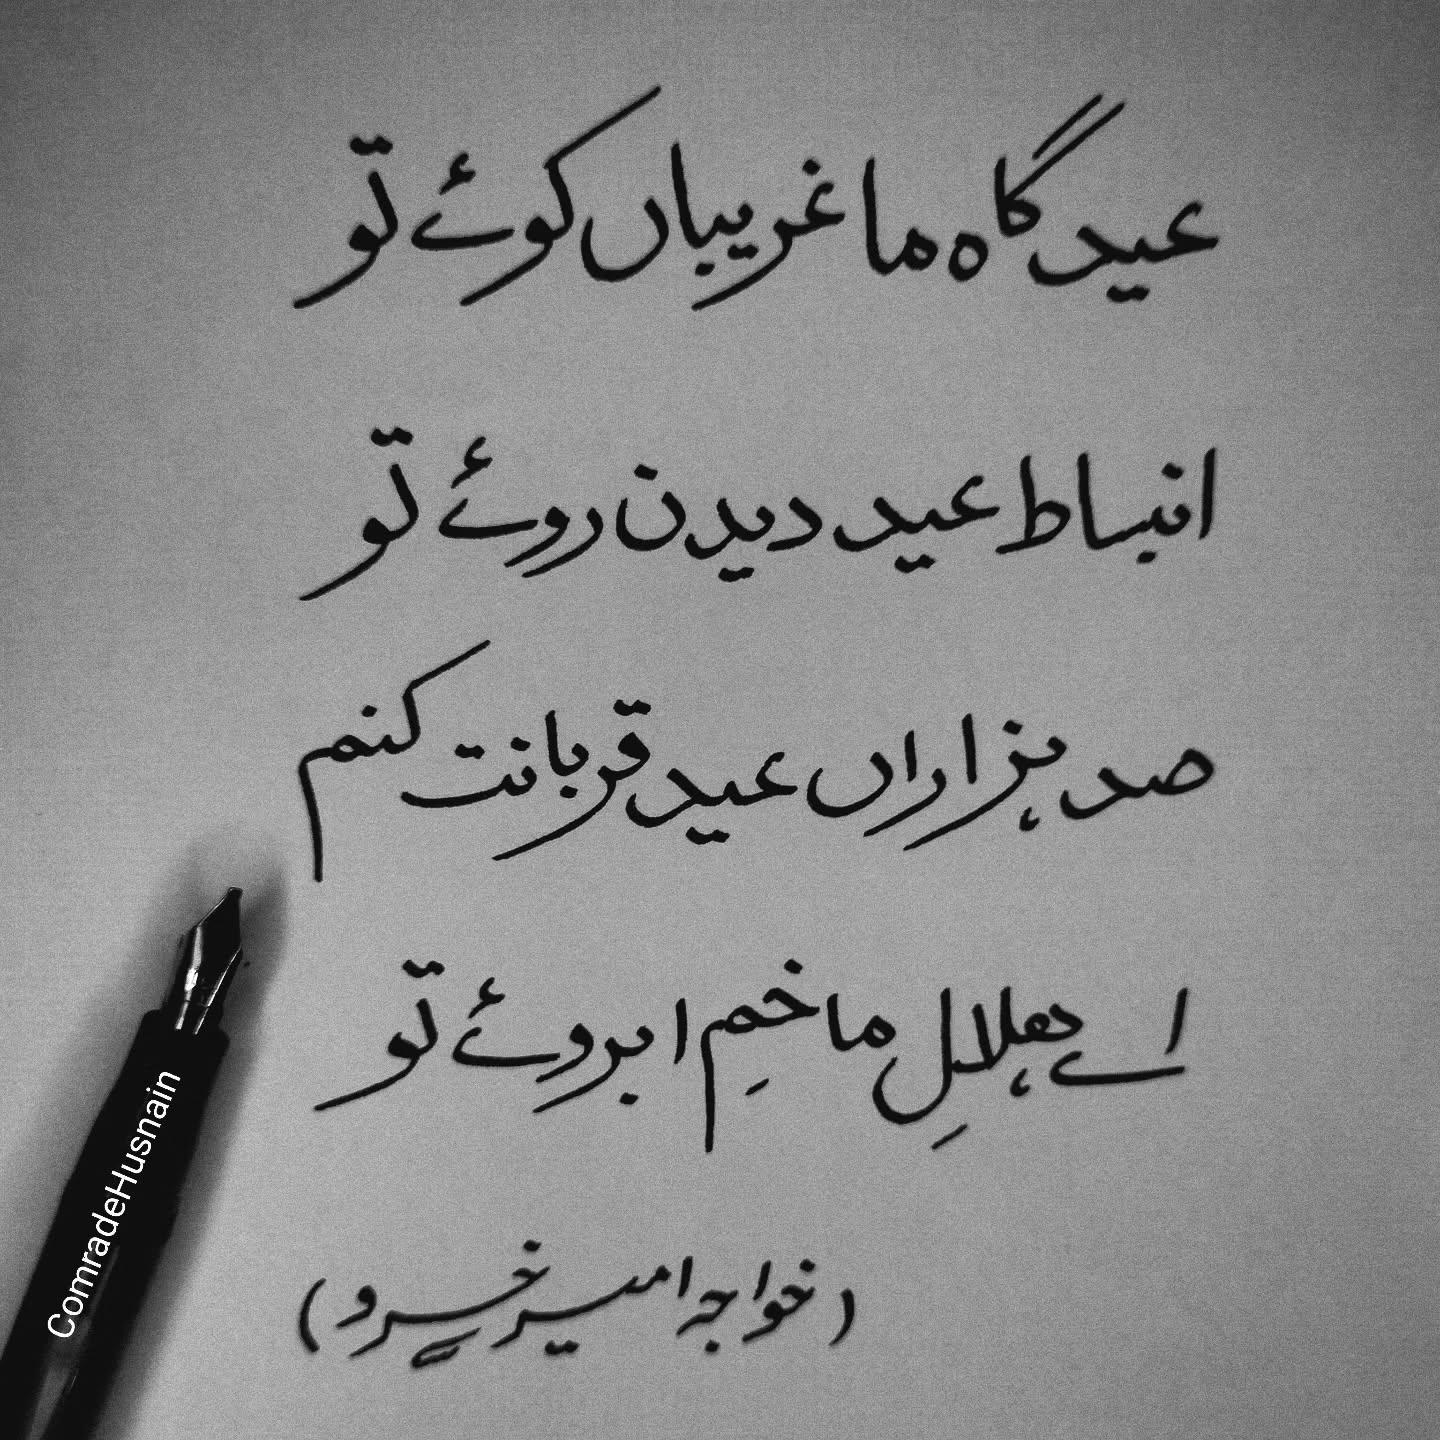 عید گاہ ما غریباں کوئے تو
انبساط عید دیدن روئے تو
صد ہزاراں عید قربانت کنم
اے ہلالِ ما خمِ ابروئے تو
(خواجہ امیر خسرو)
ComradeHusnain